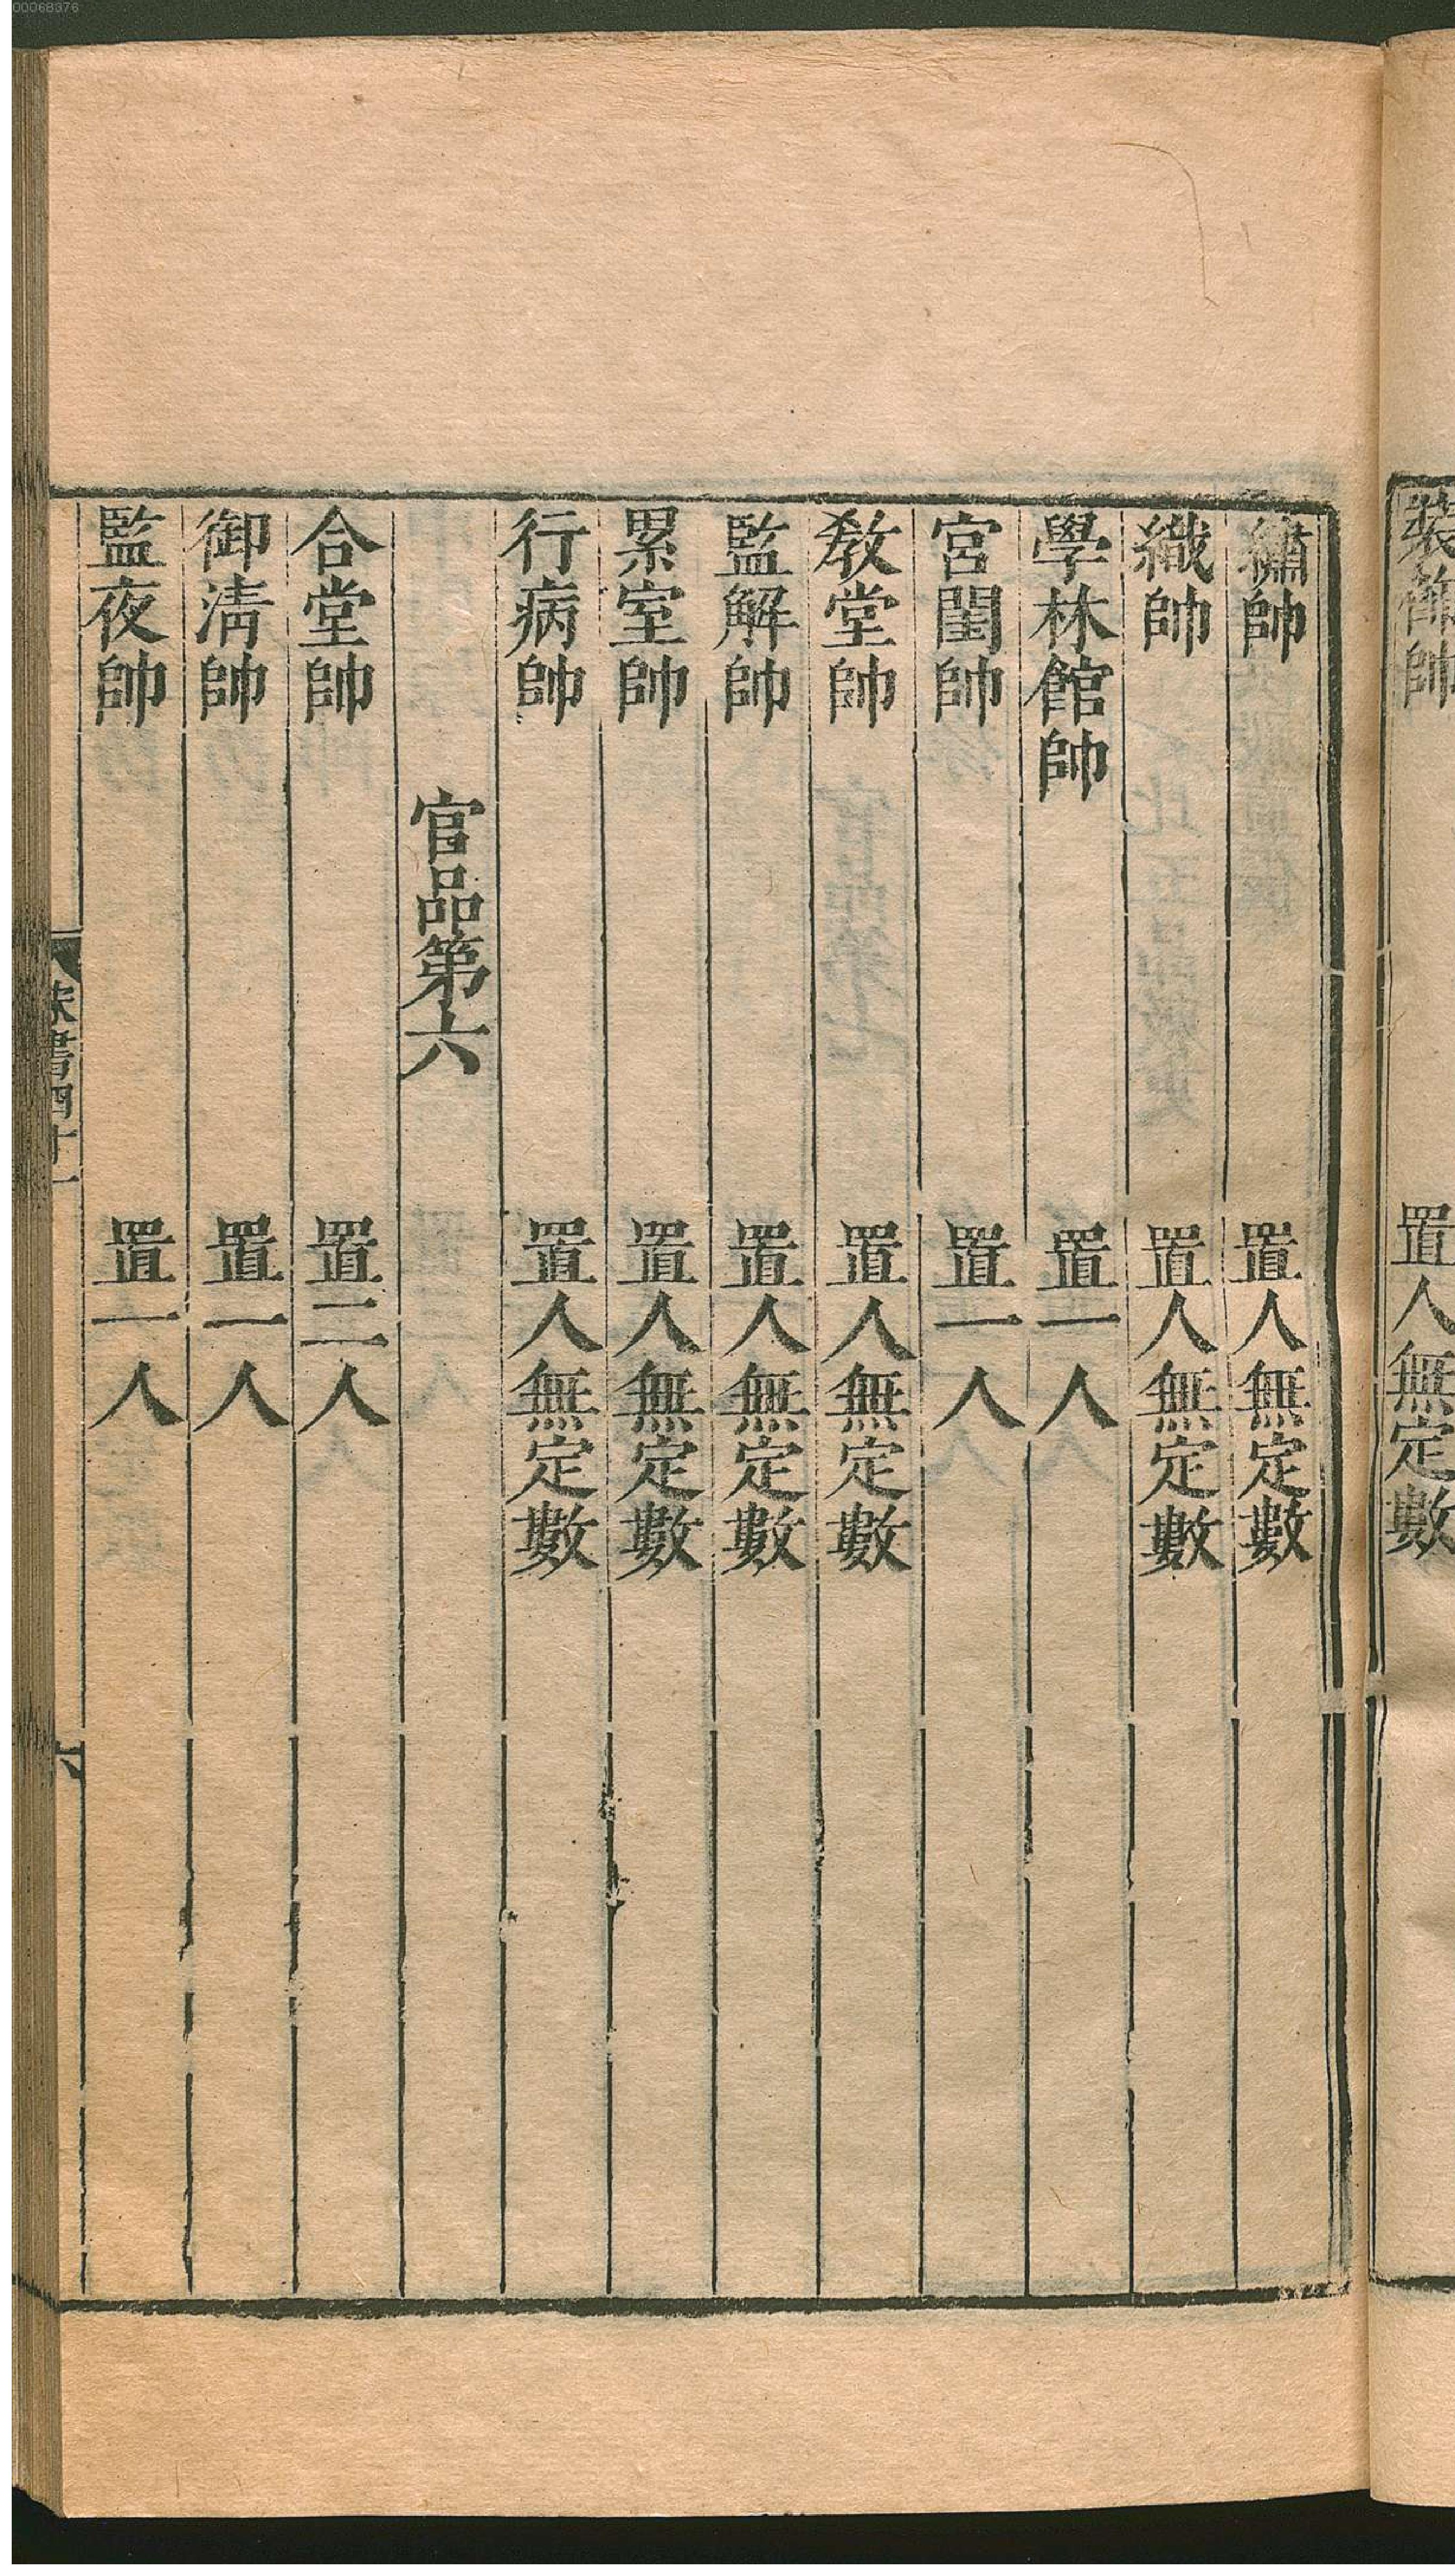 00068376
裝飾帥 置人無定數
繡帥 置人無定數
織帥 置人無定數
學林館帥 置一人
宮閨帥 置一人
教堂帥 置人無定數
監解帥 置人無定數
累室帥 置人無定數
行病帥 置人無定數
官品第六
合堂帥 置二人
御清帥 置一人
監夜帥 置一人
宋書四十一 六